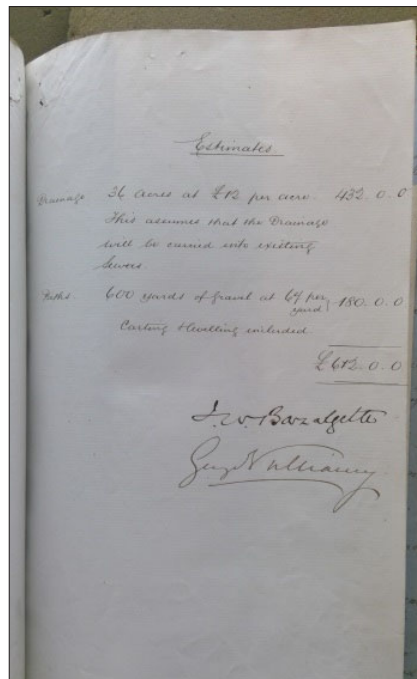 Estimates
Drainage 36 acres at £12 per acre. 432. 0. 0
This assumes that the Drainage
will be carried into existing
Sewers.
Paths 600 yards of gravel at 6/- per yard 180. 0. 0
Carting & levelling included.
£612. 0. 0
J. W. Bazalgette
Geo Vulliamy